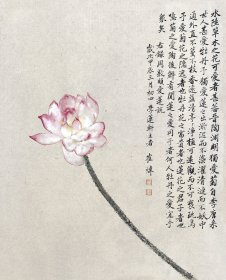 水陸草木之花可愛者甚蕃晉陶淵明獨愛菊自李唐來
世人甚愛牡丹予獨愛蓮之出淤泥而不染濯清漣而不妖中
通外直不蔓不枝香遠益清亭亭淨植可遠觀而不可褻玩焉
予謂菊花之隱逸者也牡丹花之富貴者也蓮花之君子者也
噫菊之愛陶後鮮有聞蓮之愛同予者何人牡丹之愛宜乎
眾矣 右錄周敦頤愛蓮說
歲次甲辰三月初四